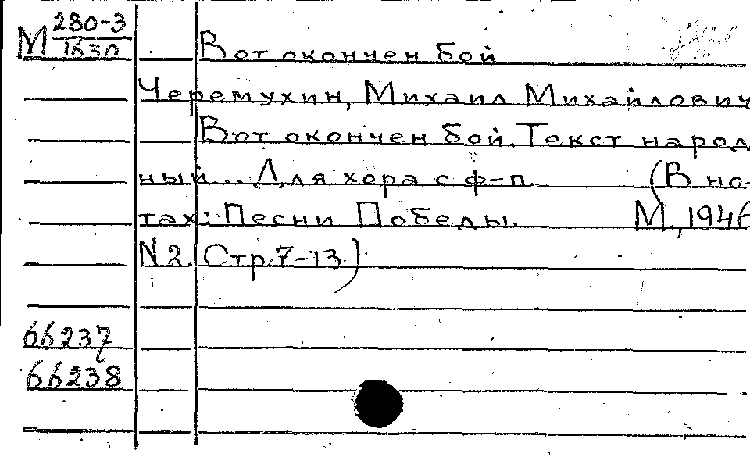 М 280-3/1630
Вот окончен бой
Черемухин, Михаил Михайлович
Вот окончен бой. Текст народ
ный... Для хора с ф-п. (В но-
тах: Песни Победы. М., 1946
N 2. Стр. 7-13)
66237
66238